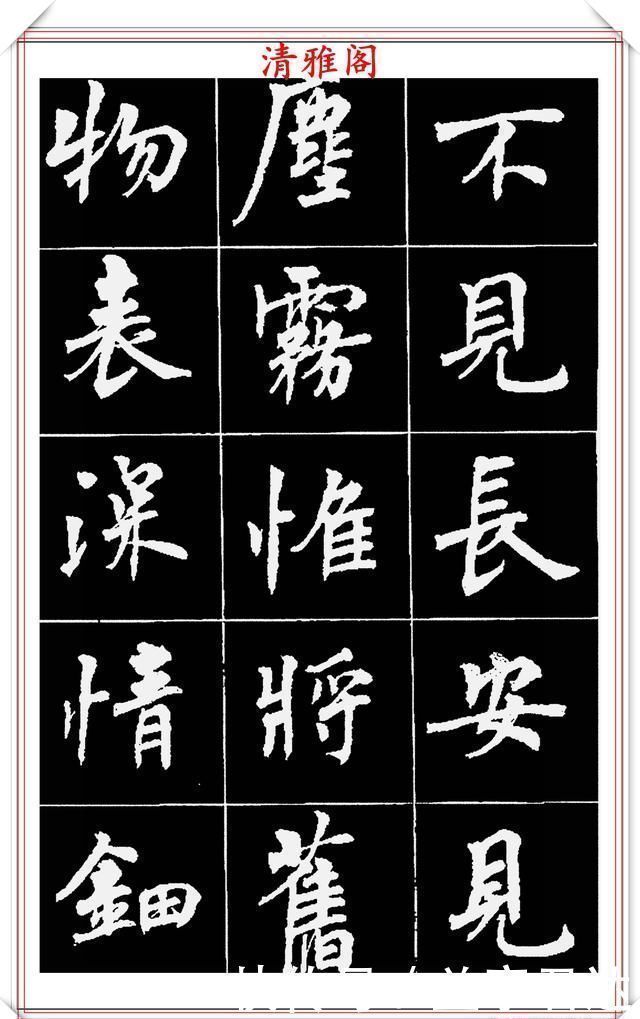 清雅阁
不見長安見
塵霧惟將舊
物表深情鈿